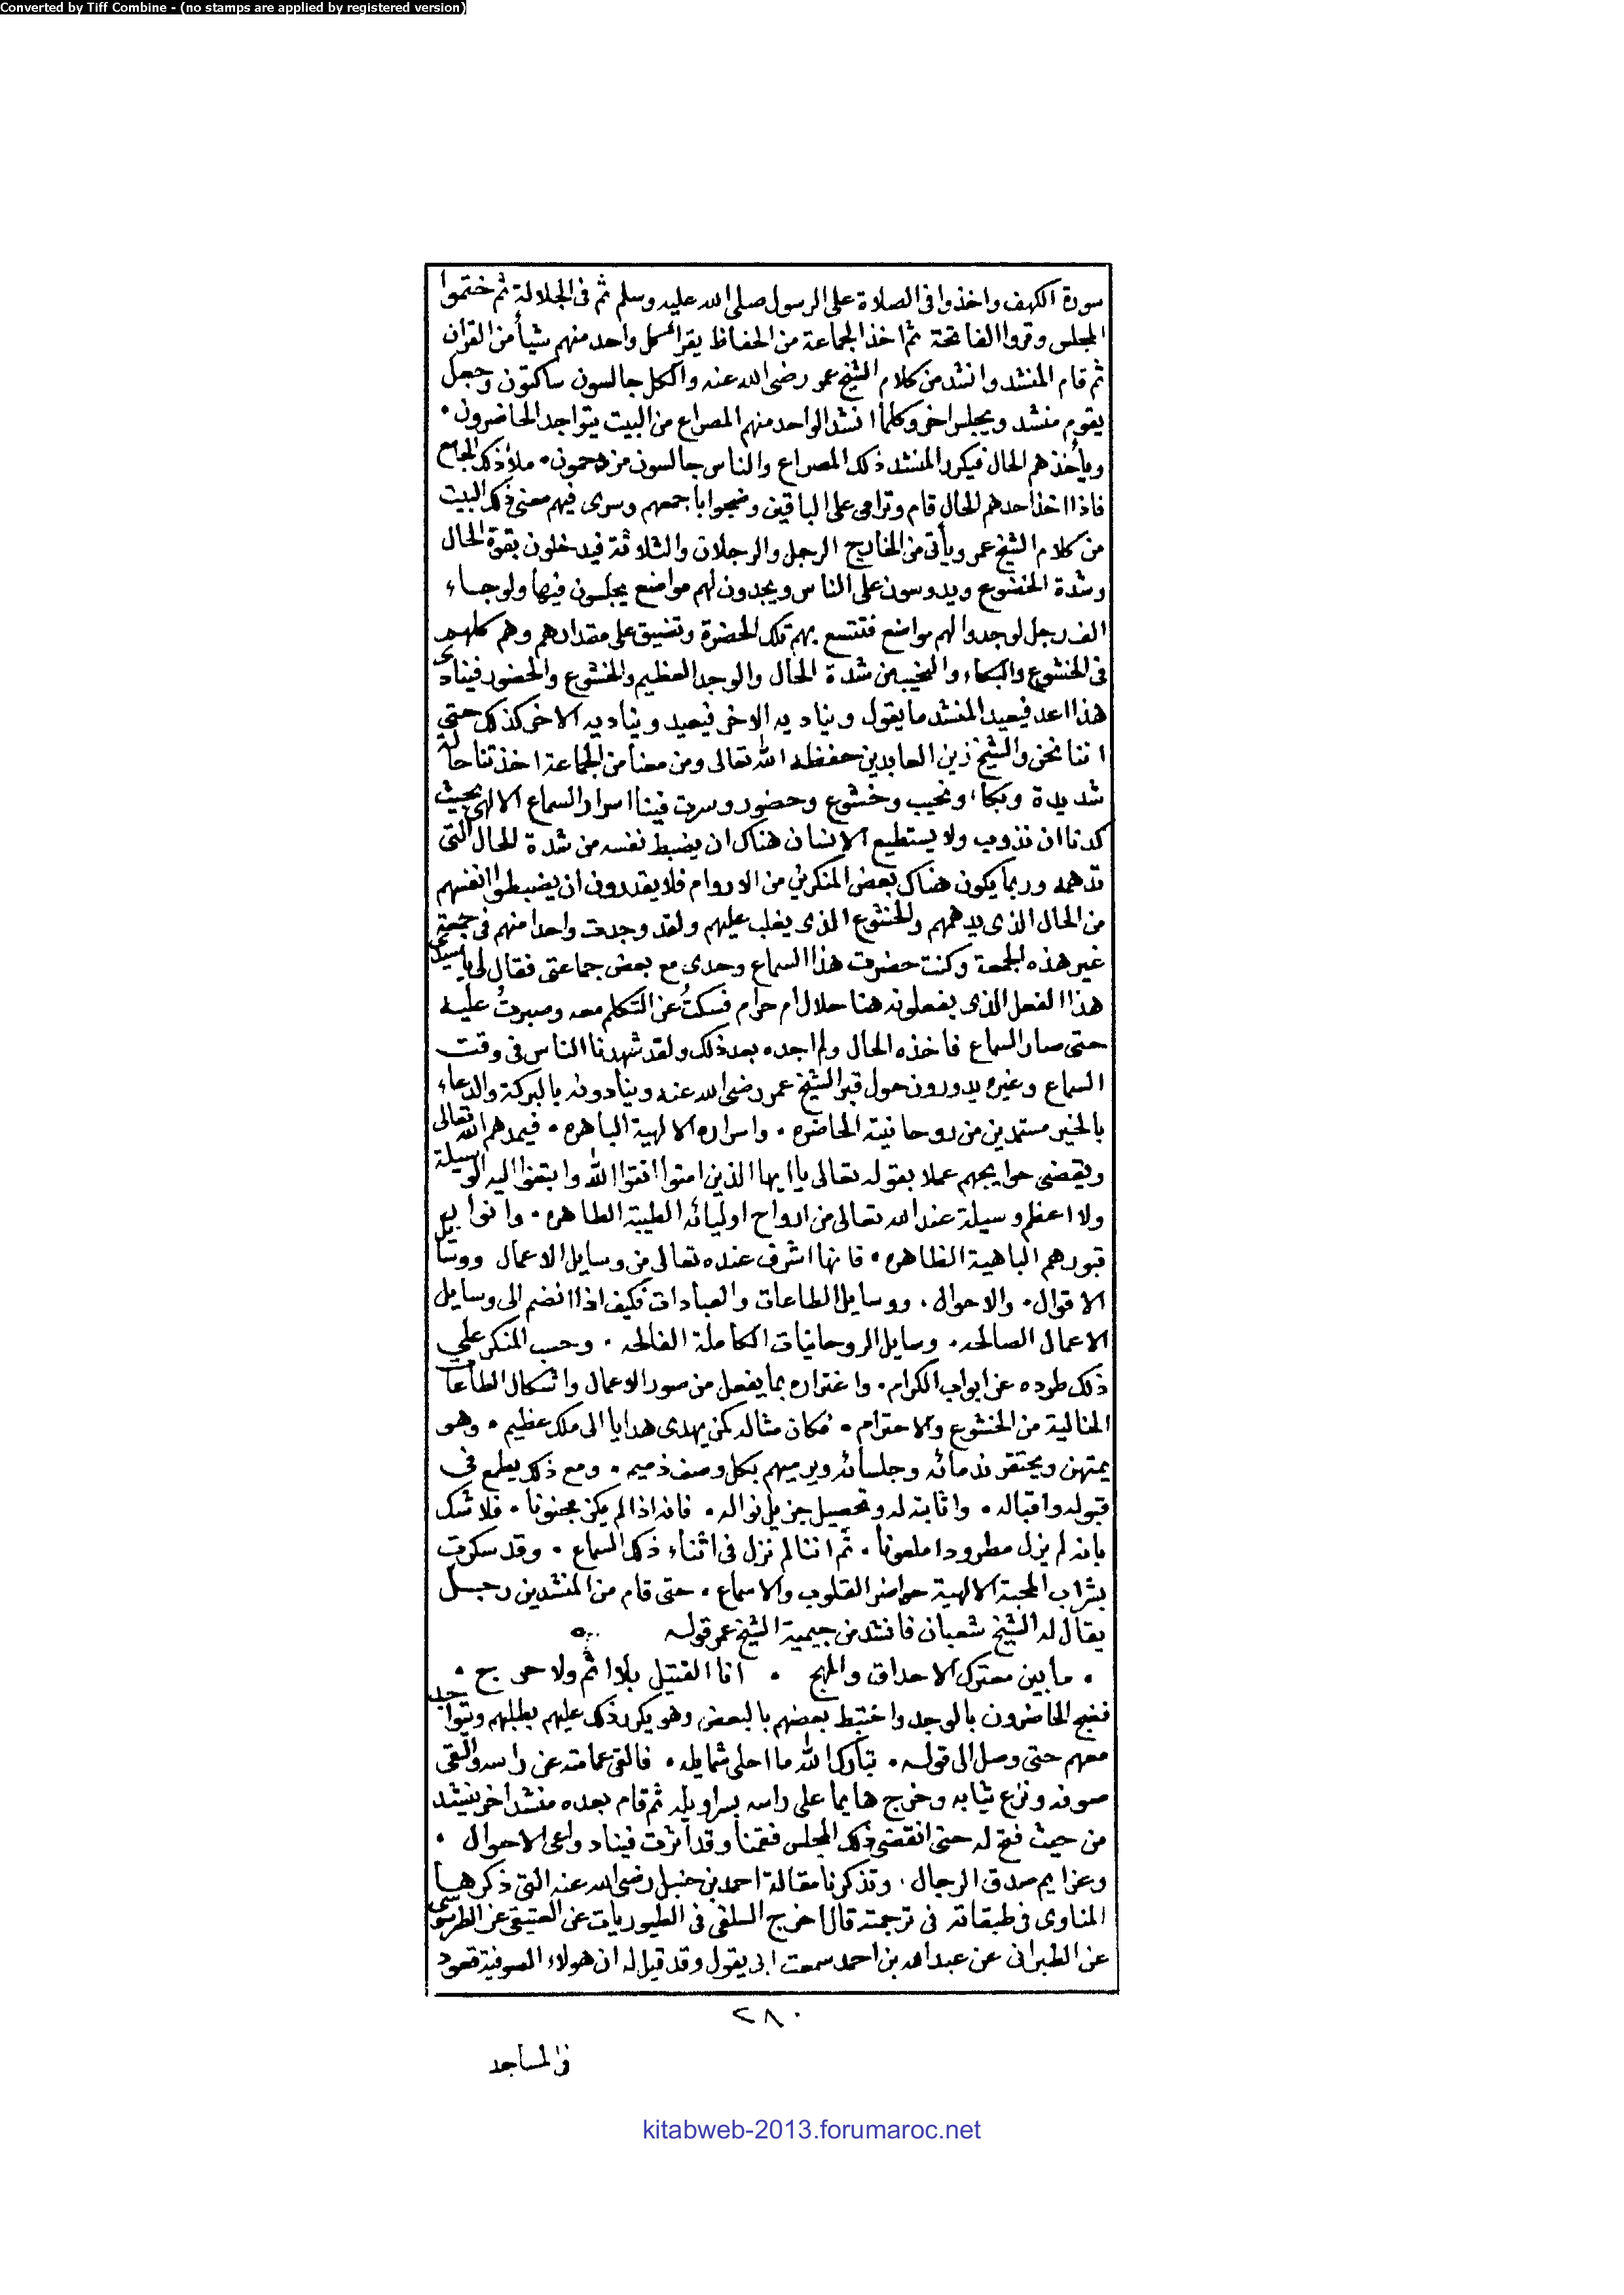 Converted by Tiff Combine - (no stamps are applied by registered version)
سورة الكهف واخذوا فى الصلاة على الرسول صلى الله عليه وسلم ثم فى الجلالة ثم ختموا
المجلس وقروا الفاتحة ثم اخذ الجماعة من الحفاظ يقرأ كل واحد منهم شيأ من القرآن
ثم قام المنشد وانشد من كلام الشيخ عمر رضى الله عنه والكل جالسون ساكتون وجعل
يقوم منشد ويجلس اخر وكلما انشد الواحد منهم المصراع من البيت يتواجد الحاضرون ٠
ويأخذهم الحال فيكرر المنشد ذلك المصراع والناس جالسون مزدحمون ٠ ملأ ذلك الجامع
فاذا اخذ احدهم الحال قام وترامى على الباقين وضجوا باجمعهم وسرى فيهم معنى ذلك البيت
من كلام الشيخ عمر ويأتى من الخارج الرجل والرجلان والثلاثة فيدخلون بقوة الحال
وشدة الخشوع ويدوسون على الناس ويجدون لهم مواضع يجلسون فيها ولو جاء
الف رجل لوجدوا لهم مواضع فتتسع بهم تلك الحضرة وتضيق على مقدارهم وهم كلهم
فى الخشوع والبكاء والنحيب من شدة الحال والوجد العظيم والخشوع والحضور فينادى
هذا اعد فيعيد المنشد ما يقول ويناديه الاخر فيعيد ويناديه الاخر كذلك حتى
اننا نحن والشيخ زين العابدين حفظه الله تعالى ومن معنا من الجماعة اخذتنا حالة
شديدة وبكاء ونحيب وخشوع وحضور وسرت فينا اسرار السماع الالهى بحيث
كدنا ان نذوب ولا يستطيع الانسان هناك ان يضبط نفسه من شدة الحال التى
تدهمه وربما يكون هناك بعض المنكرين من الاروام فلا يقدرون ان يضبطوا انفسهم
من الحال الذى يدهمهم والخشوع الذى يغلب عليهم ولقد وجدت واحدا منهم فى جمعة
غير هذه الجمعة وكنت حضرت هذا السماع وحدى مع بعض جماعتى فقال لى يا سيدى
هذا الفعل الذى يفعلونه هنا حلال ام حرام فسكتُ عن التكلم معه وصبرتُ عليه
حتى صار السماع فاخذه الحال ولم اجده بعد ذلك ولقد شهدنا الناس فى وقت
السماع وغيره يدورون حول قبر الشيخ عمر رضى الله عنه وينادونه بالبركة والدعاء
بالخير مستمدين من روحانيته الحاضره ٠ واسراره الالهية الباهره ٠ فيمدهم الله تعالى
ويقضى حوايجهم عملا بقوله تعالى يا ايها الذين امنوا اتقوا الله وابتغوا اليه الوسيلة
ولا اعظم وسيلة عند الله تعالى من ارواح اوليائه الطيبة الطاهره ٠ وانوار
قبورهم الباهية الظاهره ٠ فانها اشرف عنده تعالى من وسايل الاعمال ووسايل
الاقوال ٠ والاحوال ٠ ووسايل الطاعات والعبادات فكيف اذا انضم الى وسايل
الاعمال الصالحه ٠ وسايل الروحانيات الكاملة الفالحه ٠ وحسب المنكر على
ذلك طرده عن ابواب الكرام ٠ واغتراره بما يفعل من صور الاعمال واشكال الطاعات
الخالية من الخشوع والاحترام ٠ فكان مثاله كمن يهدى هدايا الى ملك عظيم ٠ وهو
يمتهن ويحتقر ندمائه وجلسائه ويرميهم بكل وصف ذميم ٠ ومع ذلك يطمع فى
قبوله واقباله ٠ واثابته له وتحصيل جزيل نواله ٠ فانه اذا لم يكن مجنونا ٠ فلا شك
بانه لم يزل مطرودا ملعونا ٠ ثم اننا لم نزل فى اثناء ذلك السماع ٠ وقد سكرت
بشراب المحبة الالهية حواضر القلوب والاسماع ٠ حتى قام من المنشدين رجل
يقال له الشيخ شعبان فانشد من جيمية الشيخ عمر قوله
٠ ما بين معترك الاحداق والمهج ٠ انا القتيل بلا اثم ولا حرج ٠
فضج الحاضرون بالوجد واختبط بعضهم بالبعض وهو يكرر ذلك عليهم بطلبهم ويتواجد
معهم حتى وصل الى قوله ٠ تبارك الله ما احلى شمايله ٠ فالقى عمامته عن راسه والقى
صوفه ونزع ثيابه وخرج هايما على راسه بسراويله ثم قام بعده منشد اخر ينشد
من حيث فتح له حتى انقضى ذلك المجلس فقمنا وقد اثرت فينا دواعى الاحوال ٠
وعزايم صدق الرجال ٠ وتذكرنا مقالة احمد بن حنبل رضى الله عنه التى ذكرها
المناوى فى طبقاته فى ترجمته قال اخرج السلفى فى الطيوريات عن العتيقى عن الطرسوسى
عن الطبرانى عن عبد الله بن احمد سمعت ابى يقول وقد قيل له ان هولاء الصوفية قعود
٢٨٠
فى المساجد
kitabweb-2013.forumaroc.net